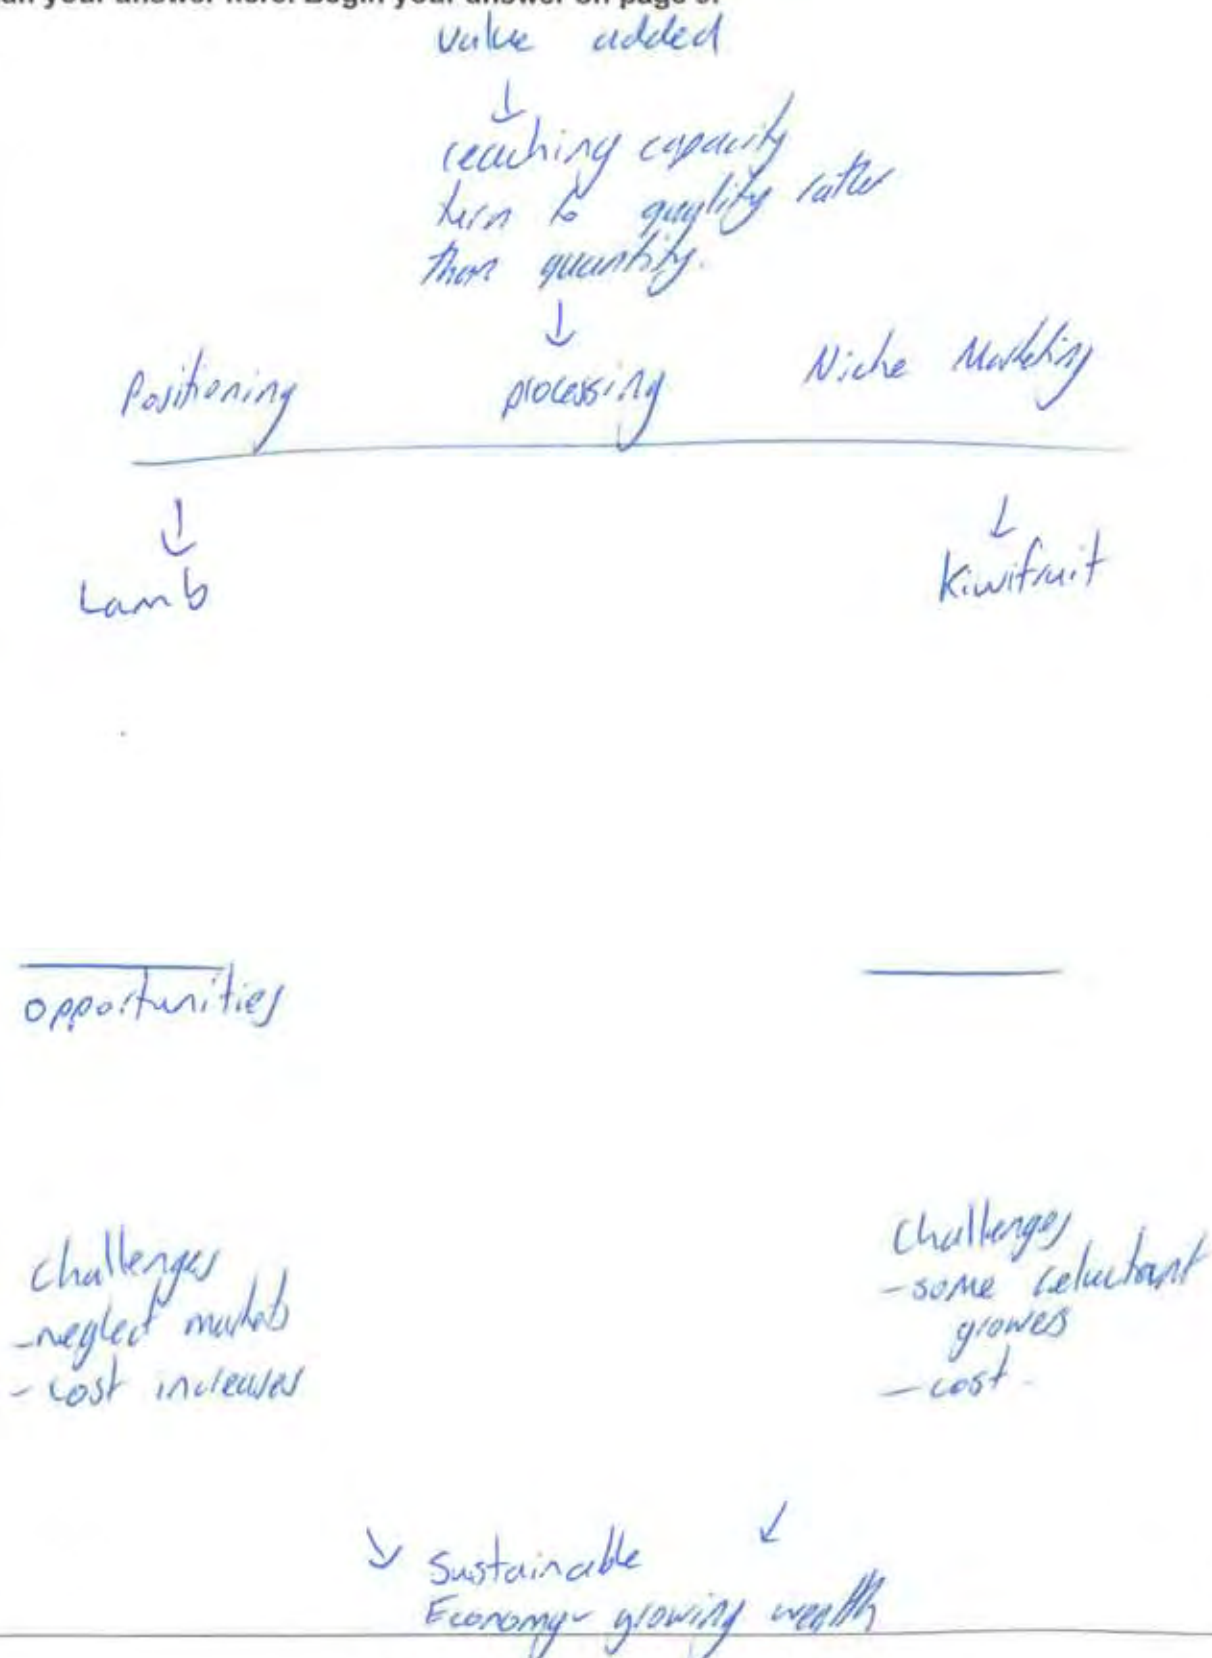 your answer here. Begin your answer on page
Value added
↓
reaching capacity
turn to quality rather
than quantity.
↓
Positioning processing Niche Marketing
↓ ↓
Lamb Kiwifruit
opportunities
Challenges
-neglect markets
- cost increases
Challenges
-some reluctant
growers
-cost.
↓ ↓
Sustainable
Economy- growing wealth